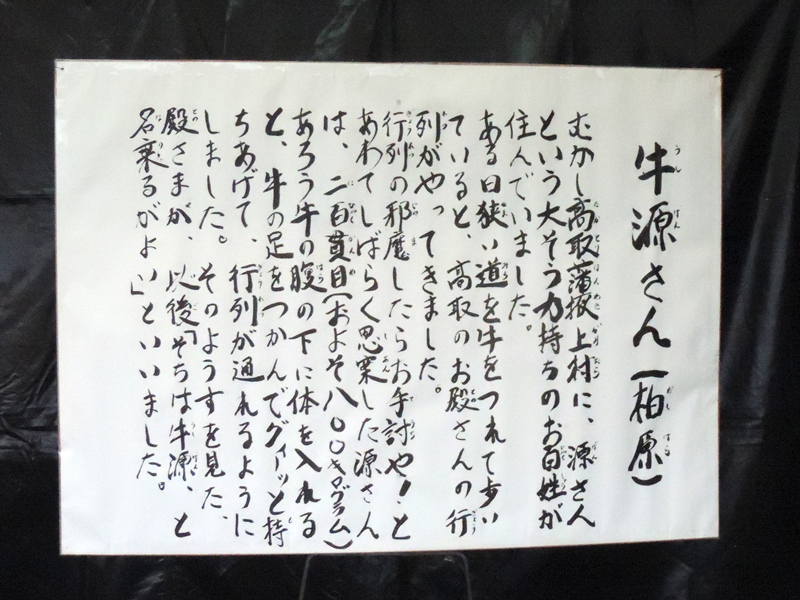 牛源さん(柏原)
むかし高取藩坂上村に、源さん
という大そう力持ちのお百姓が
住んでいました。
ある日狭い道を牛をつれて歩い
ていると、高取のお殿さんの行
列がやってきました。
行列の邪魔したらお手討や!と
あわてしばらく思案した源さん
は、二百貫目(およそ八〇〇キログラム)
あろう牛の腹の下に体を入れる
と、牛の足をつかんでグイーッと持
ちあげて、行列が通れるように
しました。そのようすを見た、
殿さまが、以後「そちは牛源、と
名乗るがよい」といいました。